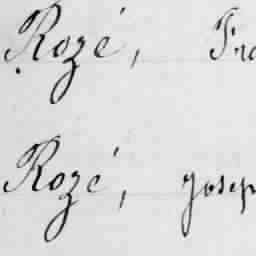 Rozé, Fra
Rozé, Josep